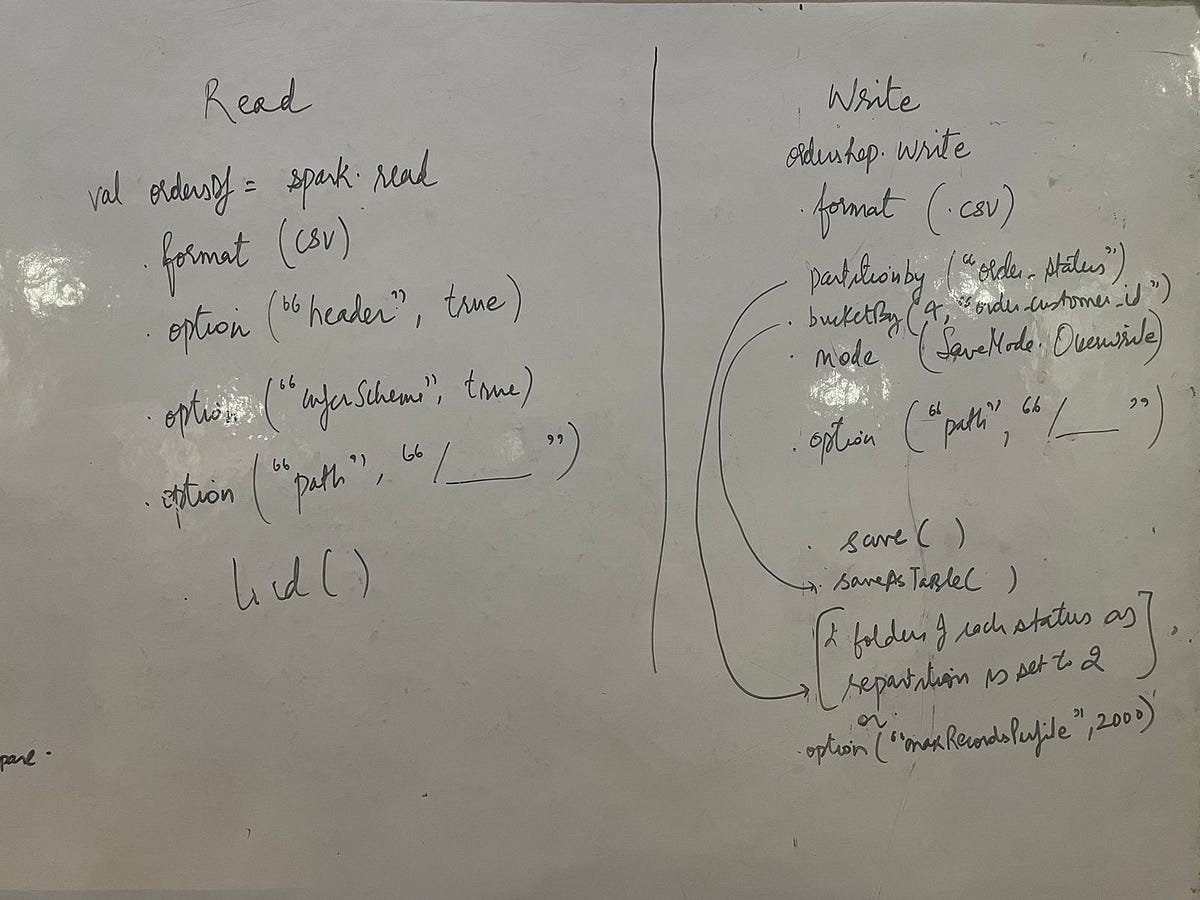 Read
val ordersDf = spark. read
. format (CSV)
. option ("header", true)
. option ("inferScheme", true)
. option ("path", "/____")
. ( )
Write
ordersRep. write
. format (.CSV)
partitionby ("order_status")
. bucketBy (4, "order_customer_id")
. mode (SaveMode. Overwrite)
. option ("path", "/____")
. save ( )
. saveAsTable( )
[2 folders of each status as
repartition is set to 2],
or
. option ("maxRecordsPerfile", 2000)